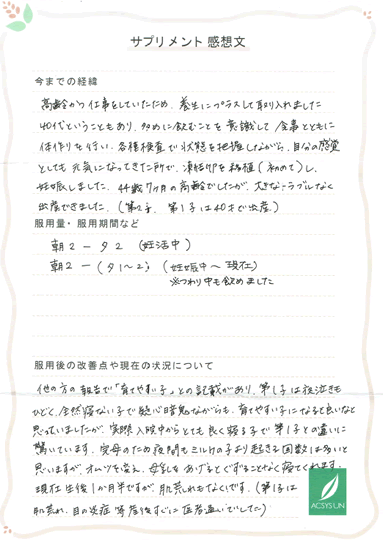 サプリメント 感想文
今までの経緯
高齢から仕事をしていたため、養生にプラスして取り入れました
40代ということもあり、多めに飲むことを意識して、食事とともに
体作りを行い、各種検査で状態を把握しながら、自分の感覚
としても元気になってきた所で、凍結卵を移植(初めて)し、
妊娠しました。44歳7ヶ月の高齢でしたが、大きなトラブルなく
出産できました。(第2子、第1子は40才で出産。)
服用量・服用期間など
朝2 ー 夕2 (妊活中)
朝2 ー (夕1〜2) (妊娠中〜現在)
※つわり中も飲めました
服用後の改善点や現在の状況について
他の方の報告で「育てやすい子」との記載があり、第1子は夜泣きも
ひどく、全然寝ない子で疑心暗鬼ながらも、育てやすい子になると良いなと
思っていましたが、実際入院中からとても良く寝る子で第1子との違いに
驚いています。完母のため夜間もミルクの子より起きる回数は多いと
思いますが、オムツを変え、母乳をあげるとぐずることなく寝てくれます。
現在生後1か月半ですが、肌荒れもなくいです。(第1子は
肌荒れ、目の炎症等産後すぐに医者通いでした)
ACSYSLIN